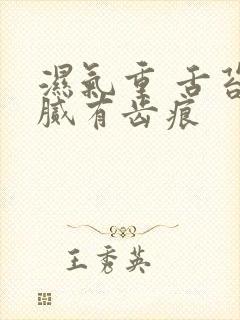 濕氣重 舌苔
膩有齿痕
王秀英